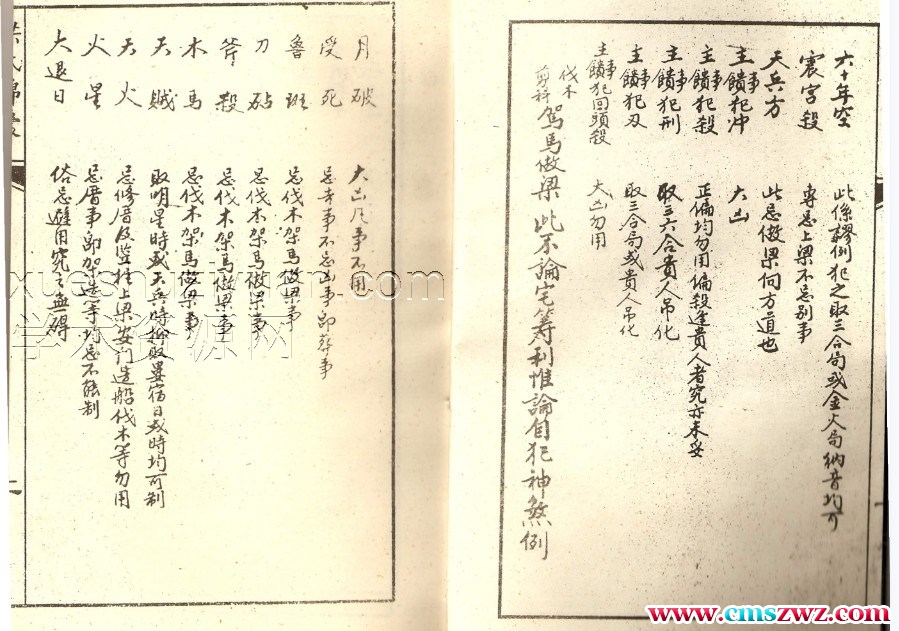 六十年空 此係謬例犯之取三合局或金火局納音均可
震宮殺 專忌上梁不忌別事
天兵方 此忌做梁向方道也
主事饋犯冲 大凶
主事饋犯殺 正偏均勿用偏殺逢貴人者究亦未妥
主事饋犯刑 取三六合貴人吊化
主事饋犯刃 取三合局或貴人吊化
主事饋犯回頭殺 大凶勿用
伐木剪料 駕馬做梁 此不論宅筭利惟論自犯神煞例
月破 大凶凡事不用
受死 忌吉事不忌凶事即葬事
魯班 忌伐木架馬做梁事
刀砧 忌伐木架馬做梁事
斧殺 忌伐木架馬做梁事
木馬 忌伐木架馬做梁事
天賊 取明星時或天兵時抑取婁宿日或時均可制
天火 忌修厝及竪柱上梁安門造船伐木等勿用
火星 忌厝事即架造等均忌不能制
大退日 俗忌避用究之無碍
xuesh
com
学术资源网
www.cmszwz.com